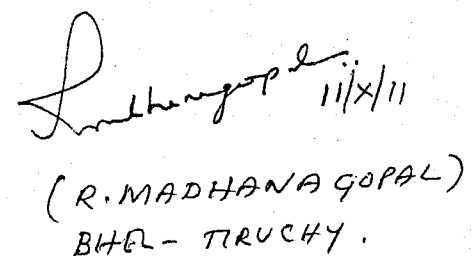 11/X/11
(R. MADHANAGOPAL)
BHEL - TIRUCHY.